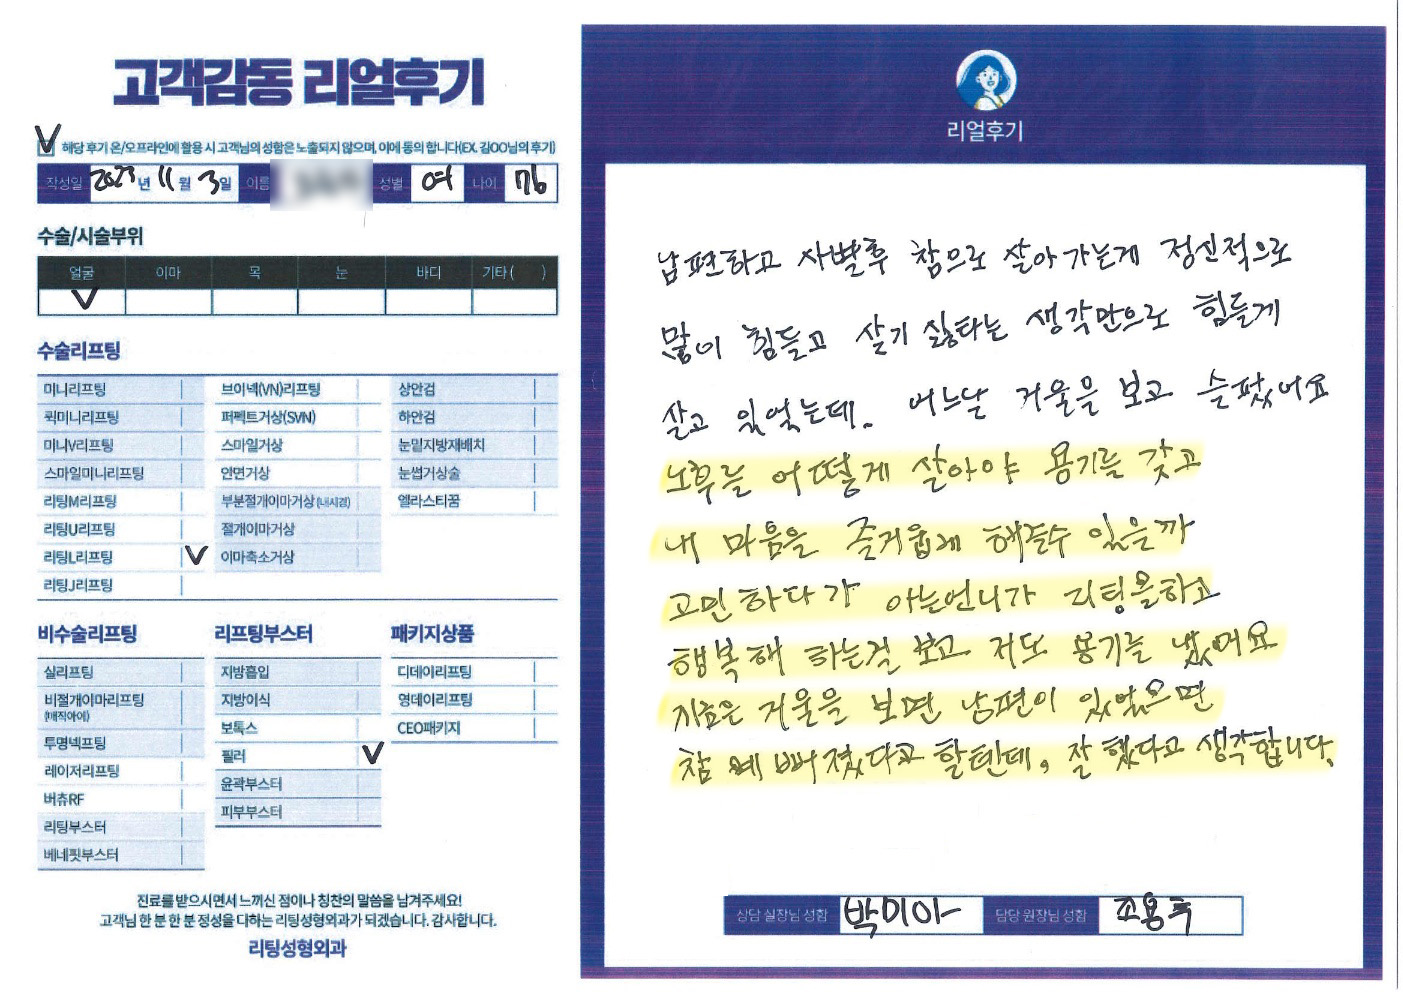 고객감동 리얼후기
V 해당 후기 온/오프라인에 활용 시 고객님의 성함은 노출되지 않으며, 이에 동의 합니다(EX. 김OO님의 후기)
작성일 2023년 11월 3일 이름 성별 여 나이 76
수술/시술부위
얼굴 이마 목 눈 바디 기타 ( )
V
수술리프팅
미니리프팅 브이넥(VN)리프팅 상안검
퀵미니리프팅 퍼펙트거상(SVN) 하안검
미니V리프팅 스마일거상 눈밑지방재배치
스마일미니리프팅 안면거상 눈썹거상술
리팅M리프팅 부분절개이마거상 (내시경) 엘라스티꿈
리팅U리프팅 절개이마거상
리팅L리프팅 V 이마축소거상
리팅J리프팅
비수술리프팅 리프팅부스터 패키지상품
실리프팅 지방흡입 디데이리프팅
비절개이마리프팅 지방이식 영데이리프팅
(매직아이)
보톡스 CEO패키지
투명넥프팅
필러 V
레이저리프팅
윤곽부스터
버츄RF
피부부스터
리팅부스터
베네핏부스터
진료를 받으시면서 느끼신 점이나 칭찬의 말씀을 남겨주세요!
고객님 한 분 한 분 정성을 다하는 리팅성형외과가 되겠습니다. 감사합니다.
리팅성형외과
리얼후기
남편하고 사별후 참으로 살아가는게 정신적으로
많이 힘들고 살기 싫타는 생각만으로 힘들게
살고 있었는데. 어느날 거울을 보고 슬펐어요
노후를 어떻게 살아야 용기를 갖고
내 마음을 즐거웁게 해줄수 있을까
고민하다가 아는언니가 리팅을하고
행복해 하는걸 보고 저도 용기를 냈어요
지금은 거울을 보면 남편이 있었으면
참 예뻐졌다고 할텐데, 잘 했다고 생각합니다.
상담 실장님 성함 박미아 담당 원장님 성함 조용우